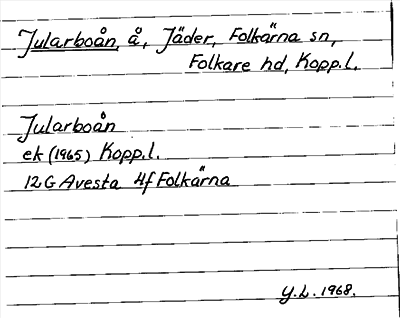 Jularboån, å, Jäder, Folkärna sn,
Folkare hd, Kopp.l.
Jularboån
ek (1965) Kopp.l.
12 G Avesta 4f Folkärna
Y.L. 1968.